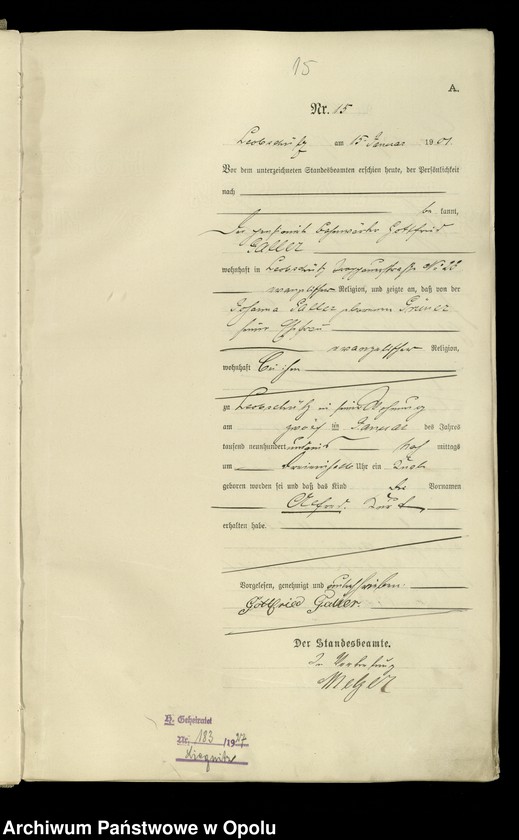 15
A.
Nr. 15
Leobschütz am 15 Januar 1901
Vor dem unterzeichneten Standesbeamten erschien heute, der Persönlichkeit
nach
be kannt,
Der Bahnwärter Gottfried
Galler
wohnhaft in Leobschütz Troppauerstraße No 22
evangelischer Religion, und zeigte an, daß von der
Johanna Galler geborenen
seiner Ehefrau
evangelischer Religion,
wohnhaft bei ihm
zu Leobschütz in seiner Wohnung
am zwölften Januar des Jahres
tausend neunhundert und eins Nach mittags
um Uhr ein Knabe
geboren worden sei und daß das Kind die Vornamen
Alfred Kurt
erhalten habe.
Vorgelesen, genehmigt und unterschrieben
Gottfried Galler.
Der Standesbeamte.
In Vertretung
Melzer
H. Geheiratet
Nr. 183 /1927
Liegnitz
Archiwum Państwowe w Opolu